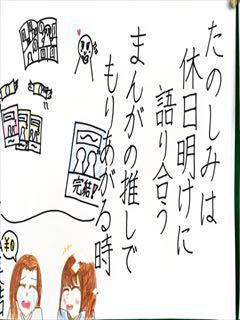 たのしみは
休日明けに
語り合う
まんがの推しで
もりあがる時
完結!
¥0